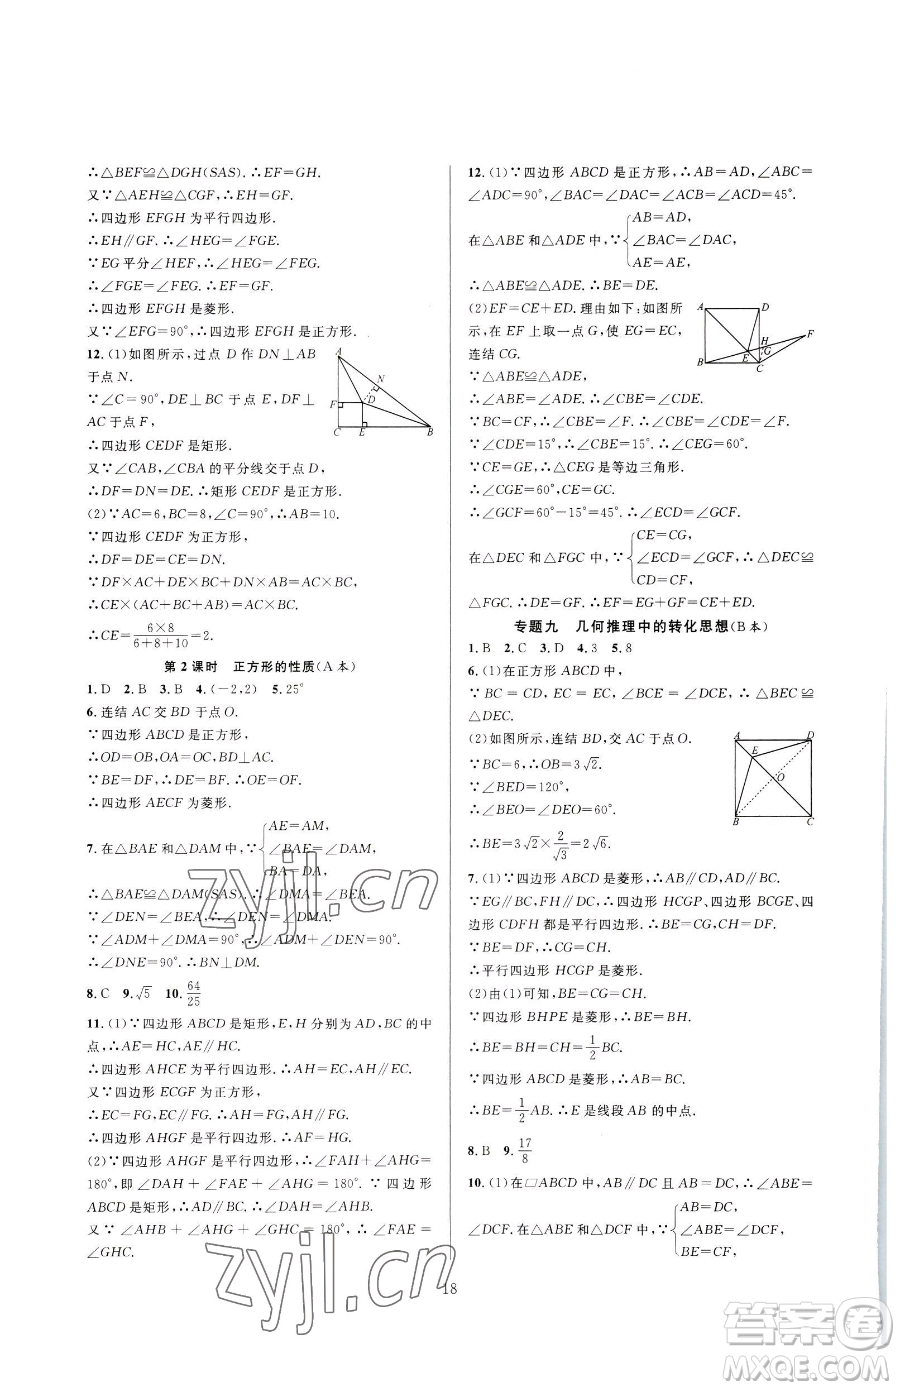 ∴△BEF≌△DGH(SAS).∴EF=GH.
又∵△AEH≌△CGF,∴EH=GF.
∴四边形 EFGH 为平行四边形.
∴EH∥GF.∴∠HEG=∠FGE.
∵EG平分∠HEF,∴∠HEG=∠FEG.
∴∠FGE=∠FEG.∴EF=GF.
∴四边形 EFGH 是菱形.
又∵∠EFG=90°,∴四边形 EFGH 是正方形.
12.(1)如图所示,过点 D 作 DN⊥AB
于点 N.
∵∠C=90°,DE⊥BC 于点 E,DF⊥
AC于点 F,
∴四边形 CEDF 是矩形.
又∵∠CAB,∠CBA 的平分线交于点 D,
∴DF=DN=DE.∴矩形 CEDF 是正方形.
(2)∵AC=6,BC=8,∠C=90°,∴AB=10.
∵四边形 CEDF 为正方形,
∴DF=DE=CE=DN.
∵DF×AC+DE×BC+DN×AB=AC×BC,
∴CE×(AC+BC+AB)=AC×BC.
∴CE=6×8/6+8+10=2.
第 2 课时 正方形的性质(A 本)
1.D 2.B 3.B 4.(-2,2) 5.25°
6.连结 AC 交 BD 于点 O.
∵四边形 ABCD 是正方形,
∴OD=OB,OA=OC,BD⊥AC.
∵BE=DF,∴DE=BF,∴OE=OF.
∴四边形 AECF 为菱形.
7.在△BAE 和△DAM 中,∵{AE=AM,
∠BAE=∠DAM,
BA=DA,
∴△BAE≌△DAM(SAS).∴∠DMA=∠BEA.
∵∠DEN=∠BEA,∴∠DEN=∠DMA.
∵∠ADM+∠DMA=90°,∴∠ADM+∠DEN=90°.
∴∠DNE=90°.∴BN⊥DM.
8.C 9.√5 10.64/25
11.(1)∵四边形 ABCD 是矩形,E,H 分别为 AD,BC 的中
点,∴AE=HC,AE∥HC.
∴四边形 AHCE 为平行四边形.∴AH=EC,AH∥EC.
又∵四边形 ECGF 为正方形,
∴EC=FG,EC∥FG.∴AH=FG,AH∥FG.
∴四边形 AHGF 是平行四边形.∴AF=HG.
(2)∵四边形 AHGF 是平行四边形,∴∠FAH+∠AHG=
180°,即∠DAH+∠FAE+∠AHG=180°.∵四边形
ABCD 是矩形,∴AD∥BC.∴∠DAH=∠AHB.
又∵∠AHB+∠AHG+∠GHC=180°,∴∠FAE=
∠GHC.
12.(1)∵四边形 ABCD 是正方形,∴AB=AD,∠ABC=
∠ADC=90°,∠BAC=∠DAC=∠ACB=∠ACD=45°.
在△ABE 和△ADE 中,∵{AB=AD,
∠BAC=∠DAC,
AE=AE,
∴△ABE≌△ADE.∴BE=DE.
(2)EF=CE+ED.理由如下:如图所
示,在 EF 上取一点 G,使 EG=EC,
连结 CG.
∵△ABE≌△ADE,
∴∠ABE=∠ADE.∴∠CBE=∠CDE.
∵BC=CF,∴∠CBE=∠F.∴∠CBE=∠CDE=∠F.
∵∠CDE=15°,∴∠CBE=15°.∴∠CEG=60°.
∵CE=GE,∴△CEG 是等边三角形.
∴∠CGE=60°,CE=GC.
∴∠GCF=60°-15°=45°.∴∠ECD=∠GCF.
在△DEC 和△FGC 中,∵{CE=CG,
∠ECD=∠GCF,∴△DEC≌
CD=CF,
△FGC.∴DE=GF.∵EF=EG+GF,∴EF=CE+ED.
专题九 几何推理中的转化思想(B 本)
1.B 2.C 3.D 4.3 5.8
6.(1)在正方形 ABCD 中,
∵BC=CD,∠BCE=∠DCE,CE=CE,∴△BEC≌
△DEC.
(2)如图所示,连结 BD,交 AC 于点 O.
∵BC=6,∴OB=3√2.
∵∠BED=120°,
∴∠BEO=∠DEO=60°.
∴BE=3√2×2/√3=2√6.
7.(1)∵四边形 ABCD 是菱形,∴AB∥CD,AD∥BC.
∵EG∥BC,FH∥DC,∴四边形 HCGP、四边形 BCGE、四
边形 CDFH 都是平行四边形.∴BE=CG,CH=DF.
又∵BE=DF,∴CG=CH.
∴平行四边形 HCGP 是菱形.
(2)由(1)可知,BE=CG=CH.
∵四边形 BHPE 是菱形,∴BE=BH.
∴BE=BH=CH=1/2BC.
∵四边形 ABCD 是菱形,∴AB=BC.
∴BE=1/2AB.∴E 是线段 AB 的中点.
8.B 9.17/8
10.(1)在□ABCD 中,AB∥DC 且 AB=DC,∴∠ABE=
∠DCF.在△ABE 和△DCF 中,∵{AB=DC,
∠ABE=∠DCF,
BE=CF,
18
zyjl.cn
zyjl.cn
答案卷
MXQE.COM